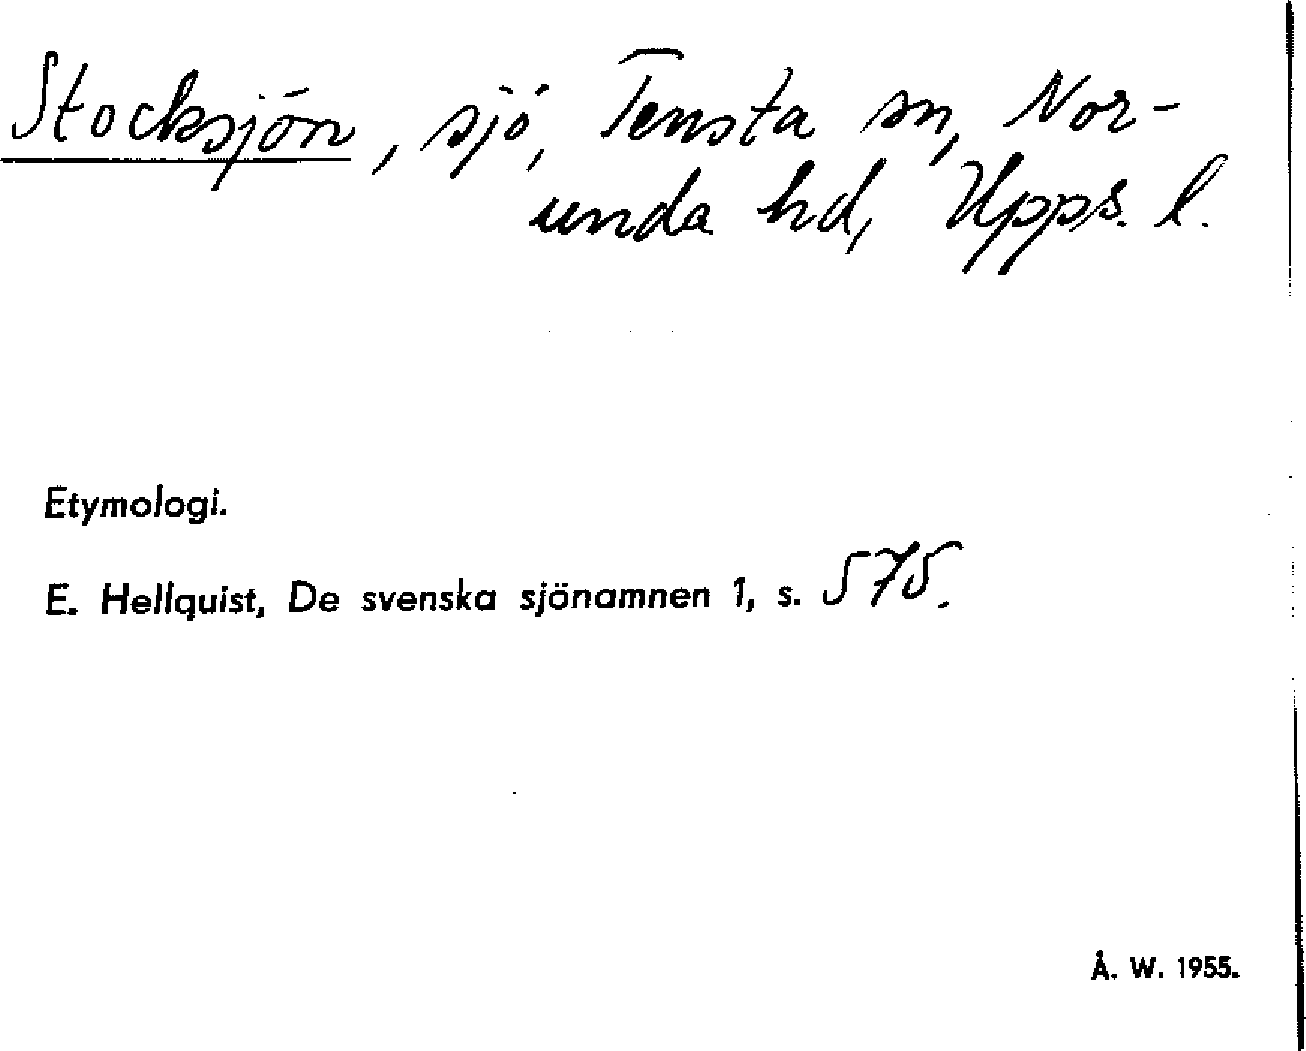 Stocksjön, sjö, Tensta sn, Nor-
unda hd, Upps. l.
Etymologi.
E. Hellquist, De svenska sjönamnen 1, s. 575.
Å. W. 1955.